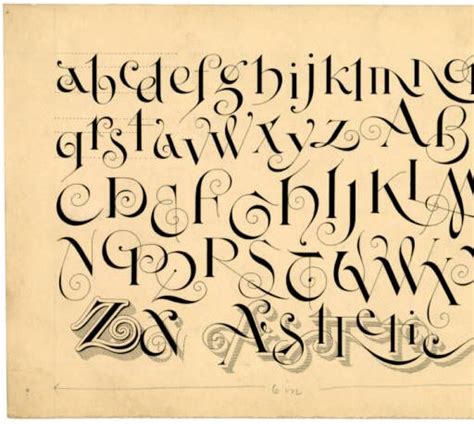 abcdefghijklmn
qrstuvwxyzAB
CDEFGHIJKLM
NOPQRSTUVWXY
Z& Aesthetic
6 in